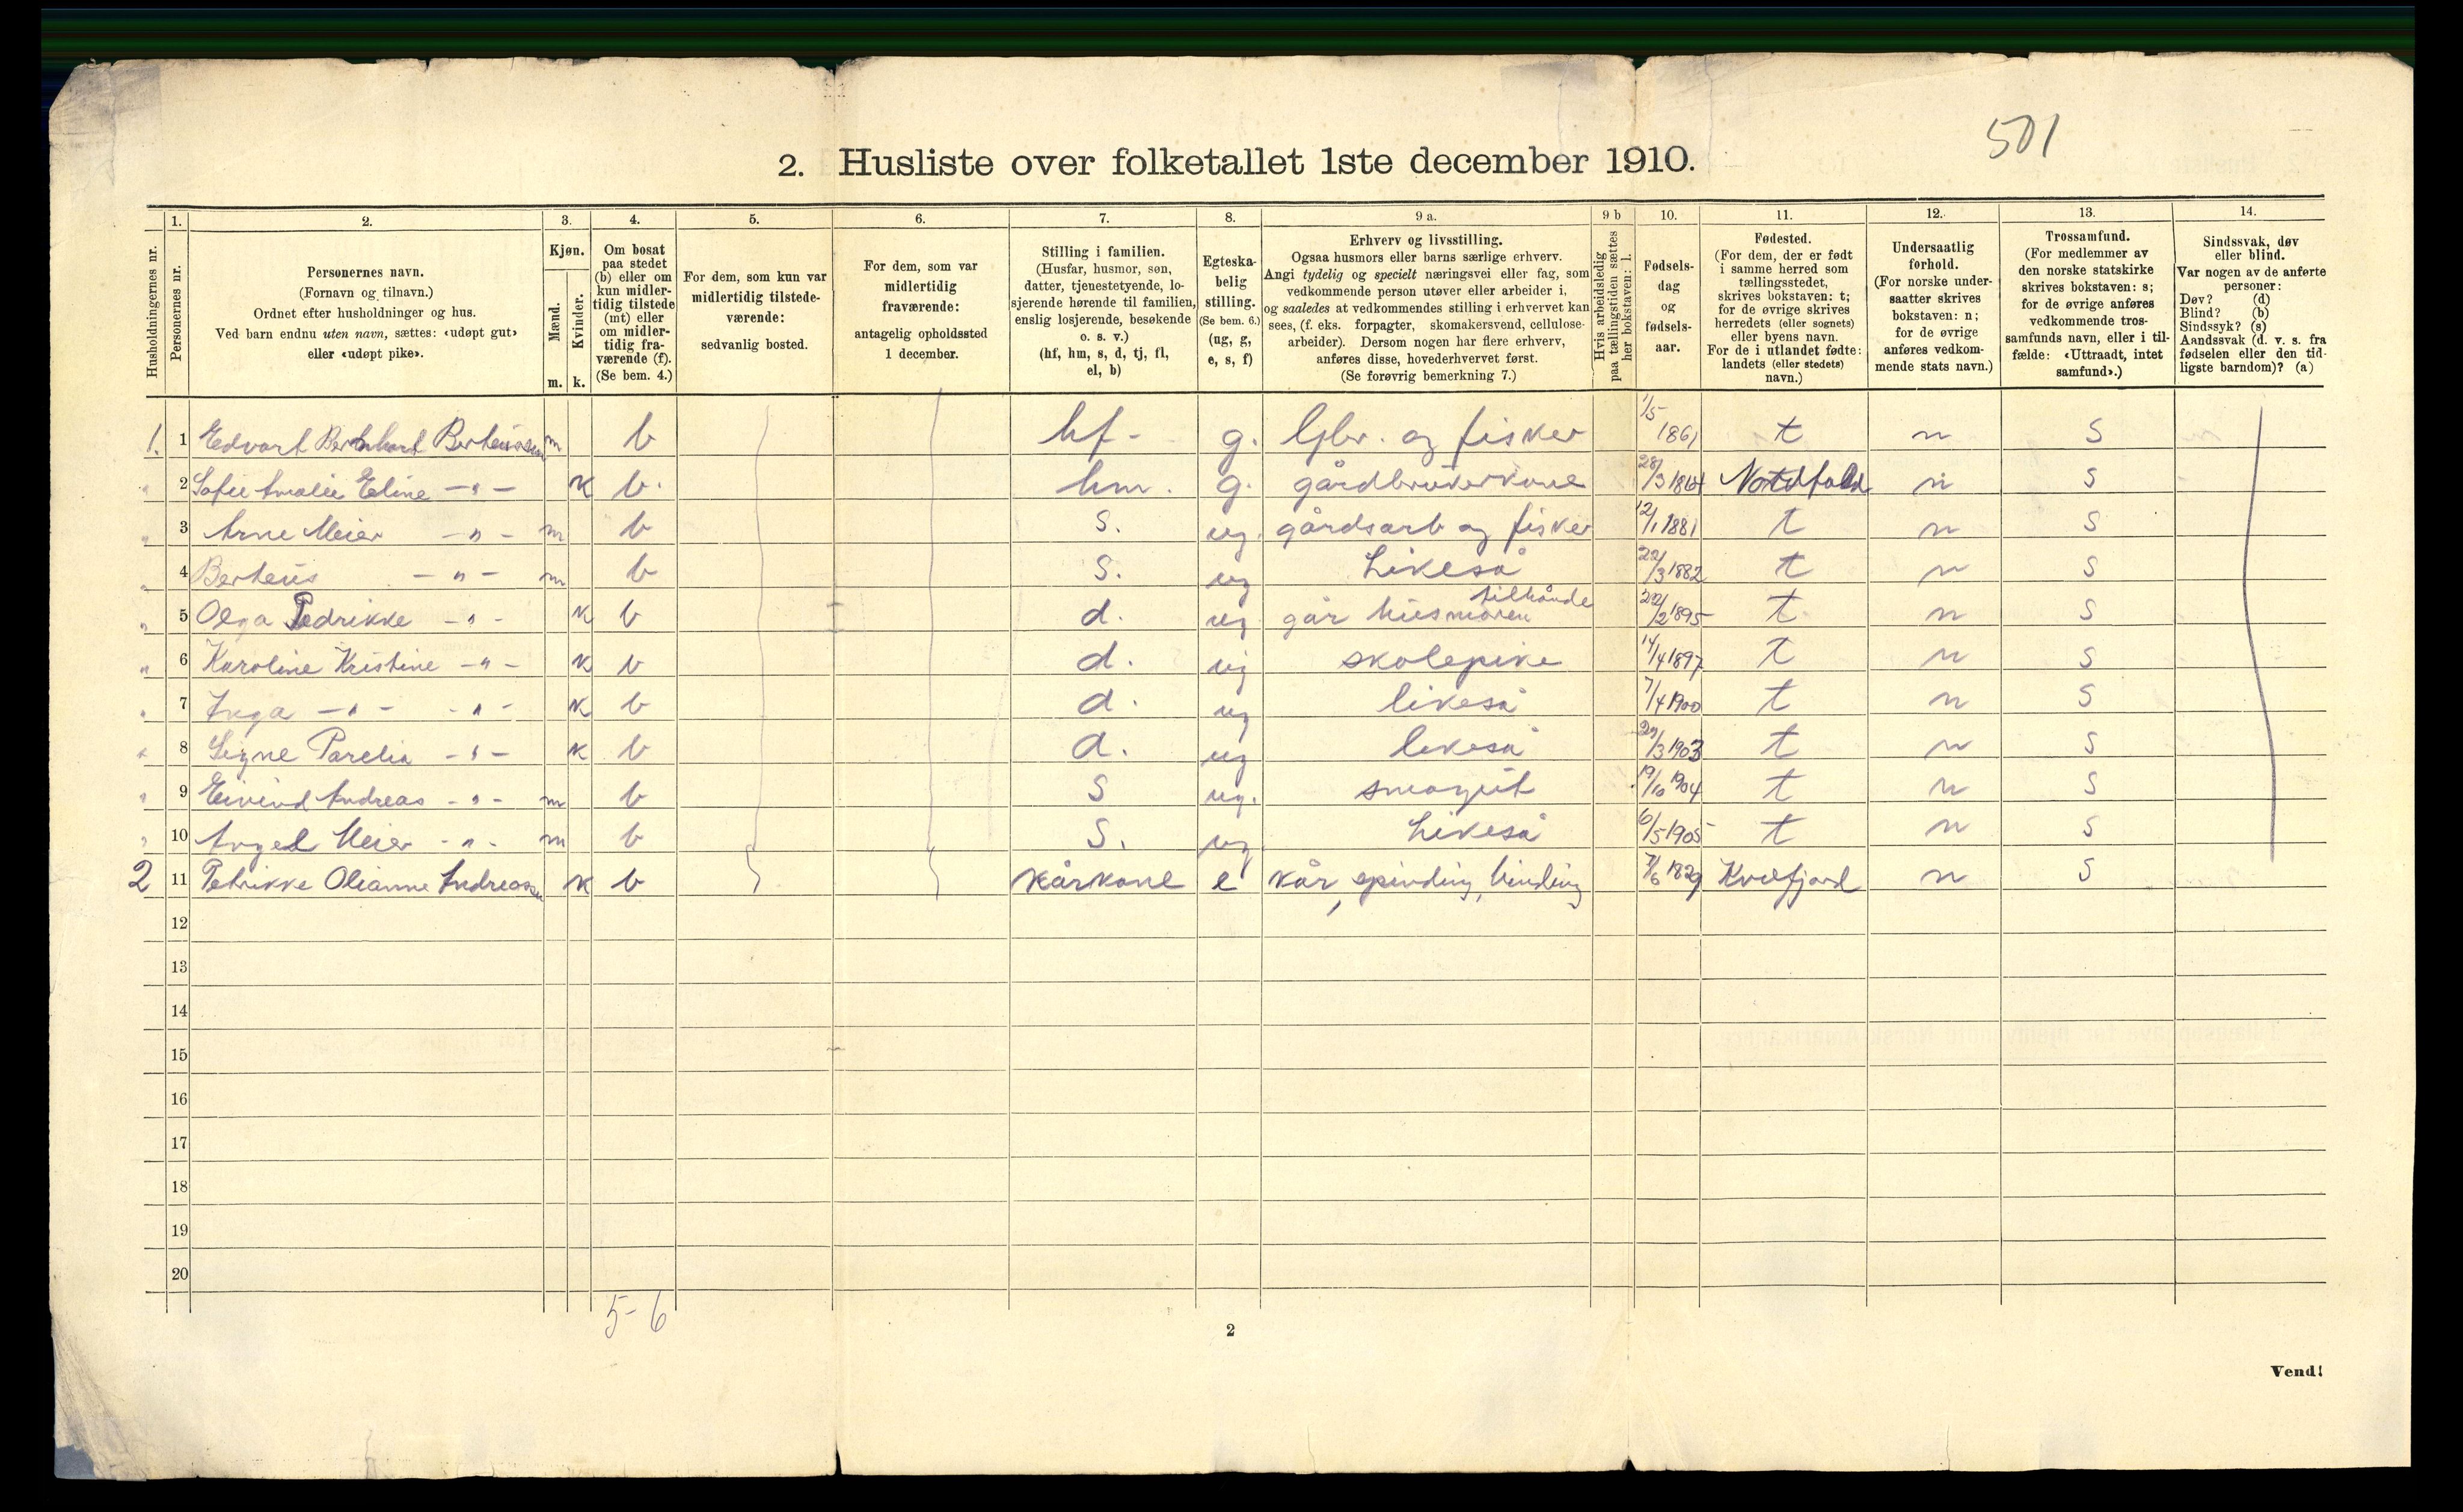 501
2. Husliste over folketallet 1ste december 1910.
Husholdningernes nr.
1.
Personernes nr.
2.
Personernes navn.
(Fornavn og tilnavn.)
Ordnet efter husholdninger og hus.
Ved barn endnu uten navn, sættes: «udøpt gut»
eller «udøpt pike».
3.
Kjøn.
Mænd.
Kvinder.
m. k.
4.
Om bosat
paa stedet
(b) eller om
kun midler-
tidig tilstede
(mt) eller
om midler-
tidig fra-
værende (f).
(Se bem. 4.)
5.
For dem, som kun var
midlertidig tilstede-
værende:
sedvanlig bosted.
6.
For dem, som var
midlertidig
fraværende:
antagelig opholdssted
1 december.
7.
Stilling i familien.
(Husfar, husmor, søn,
datter, tjenestetyende, lo-
sjerende hørende til familien,
enslig losjerende, besøkende
o. s. v.)
(hf, hm, s, d, tj, fl,
el, b)
8.
Egteska-
belig
stilling.
(Se bem. 6.)
(ug, g,
e, s, f)
9 a.
Erhverv og livsstilling.
Ogsaa husmors eller barns særlige erhverv.
Angi tydelig og specielt næringsvei eller fag, som
vedkommende person utøver eller arbeider i,
og saaledes at vedkommendes stilling i erhvervet kan
sees, (f. eks. forpagter, skomakersvend, cellulose-
arbeider). Dersom nogen har flere erhverv,
anføres disse, hovederhvervet først.
(Se forøvrig bemerkning 7.)
9 b
Hvis arbeidsledig
paa tællingstiden sættes
her bokstaven: l.
10.
Fødsels-
dag
og
fødsels-
aar.
11.
Fødested.
(For dem, der er født
i samme herred som
tællingsstedet,
skrives bokstaven: t;
for de øvrige skrives
herredets (eller sognets)
eller byens navn.
For de i utlandet fødte:
landets (eller stedets)
navn.)
12.
Undersaatlig
forhold.
(For norske under-
saatter skrives
bokstaven: n;
for de øvrige
anføres vedkom-
mende stats navn.)
13.
Trossamfund.
(For medlemmer av
den norske statskirke
skrives bokstaven: s;
for de øvrige anføres
vedkommende tros-
samfunds navn, eller i til-
fælde: «Uttraadt, intet
samfund».)
14.
Sindssvak, døv
eller blind.
Var nogen av de anførte
personer:
Døv? (d)
Blind? (b)
Sindssyk? (s)
Aandssvak (d. v. s. fra
fødselen eller den tid-
ligste barndom)? (a)
1. 1 Edvart Bernhart Berteussen m b hf - g. Gbr. og fisker 1/5 1861 t n s
" 2 Sofie Amalie Eline -"- k b. hm. g. gårdbrukerkone 28/3 1864 Nordfold n s
" 3 Arne Meier -"- m b s. ug. gårdsarb og fisker 12/1 1881 t n s
" 4 Berteus -"- m b s. ug Likeså 22/3 1882 t n s
" 5 Olga Pedrikke -"- k b d. ug går husmoren tilhånde 22/2 1895 t n s
" 6 Karoline Kristine -"- k b d. ug skolepike 14/4 1897 t n s
" 7 Inga -"- -"- k b d. ug likeså 7/4 1900 t n s
" 8 Signe Parelia -"- k b d. ug likeså 29/3 1903 t n s
" 9 Eivind Andreas -"- m b s ug. smågut 19/10 1904 t n s
" 10 Angel Meier -"- m b s. ug Likeså 6/5 1905 t n s
2 11 Petrikke Olianne Andreassen k b kårkone e kår, spinding, binding 7/6 1829 Kvæfjord n s
12
13
14
15
16
17
18
19
20
5-6
2
Vend!